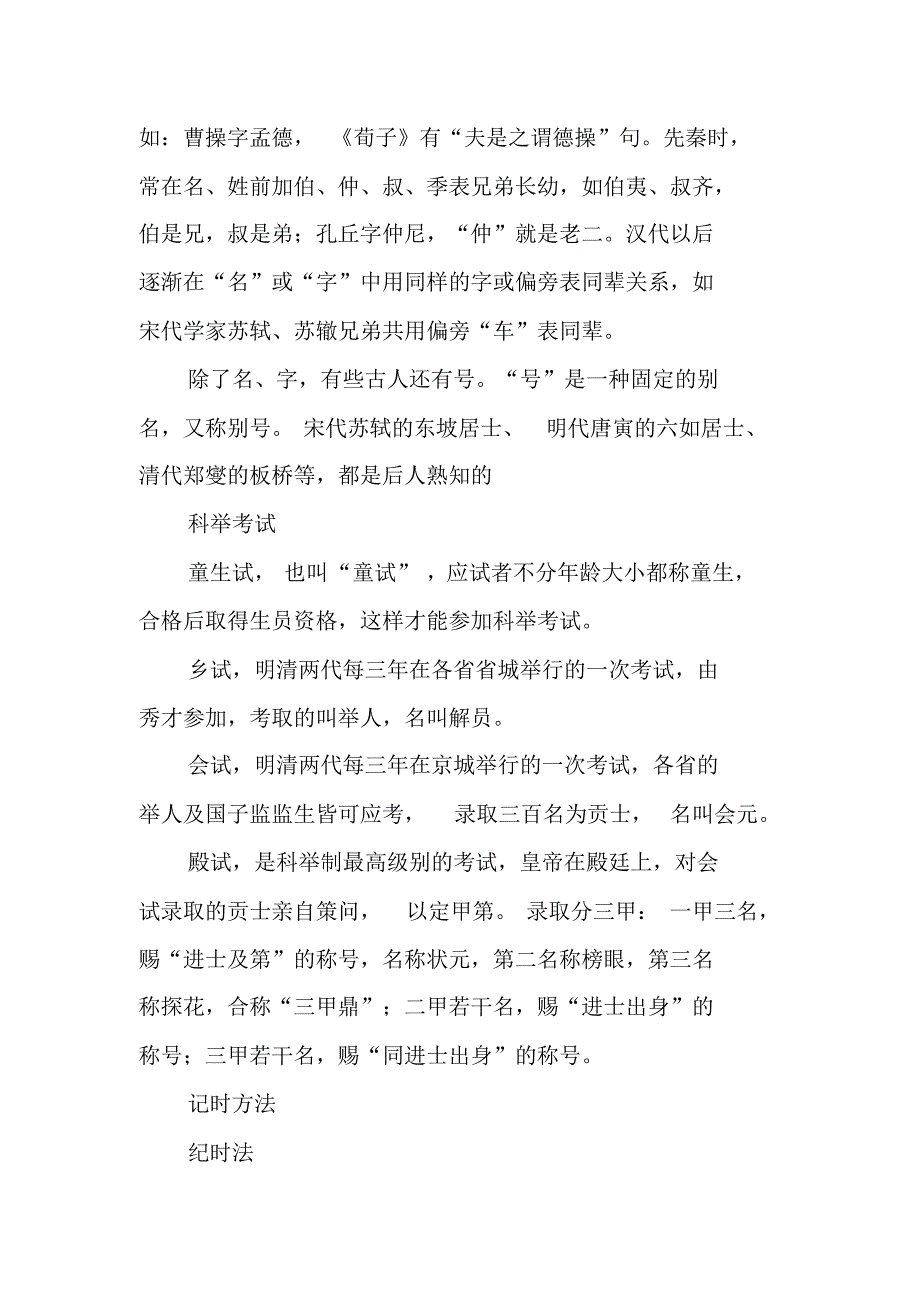 如：曹操字孟德， 《荀子》有“夫是之谓德操”句。先秦时，
常在名、姓前加伯、仲、叔、季表兄弟长幼，如伯夷、叔齐，
伯是兄，叔是弟；孔丘字仲尼，“仲”就是老二。汉代以后
逐渐在“名”或“字”中用同样的字或偏旁表同辈关系，如
宋代学家苏轼、苏辙兄弟共用偏旁“车”表同辈。
除了名、字，有些古人还有号。“号”是一种固定的别
名，又称别号。 宋代苏轼的东坡居士、 明代唐寅的六如居士、
清代郑燮的板桥等，都是后人熟知的
科举考试
童生试， 也叫“童试” ，应试者不分年龄大小都称童生，
合格后取得生员资格，这样才能参加科举考试。
乡试，明清两代每三年在各省省城举行的一次考试，由
秀才参加，考取的叫举人，名叫解员。
会试，明清两代每三年在京城举行的一次考试，各省的
举人及国子监监生皆可应考， 录取三百名为贡士， 名叫会元。
殿试，是科举制最高级别的考试，皇帝在殿廷上，对会
试录取的贡士亲自策问， 以定甲第。 录取分三甲： 一甲三名，
赐“进士及第”的称号，名称状元，第二名称榜眼，第三名
称探花，合称“三甲鼎”；二甲若干名，赐“进士出身”的
称号；三甲若干名，赐“同进士出身”的称号。
记时方法
纪时法